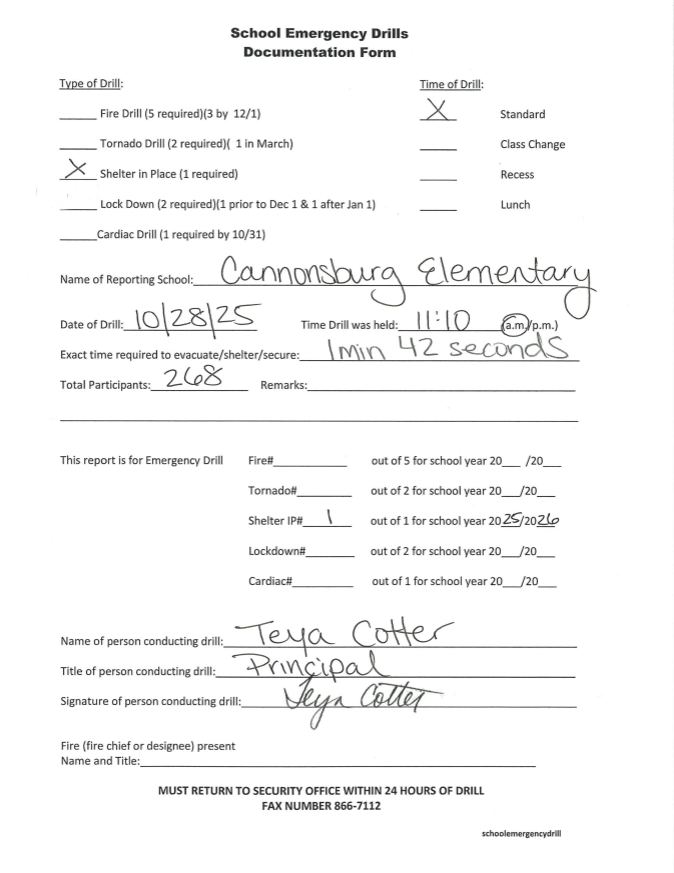 School Emergency Drills
Documentation Form
Type of Drill: Time of Drill:
_____ Fire Drill (5 required)(3 by 12/1) X Standard
_____ Tornado Drill (2 required)( 1 in March) _____ Class Change
X Shelter in Place (1 required) _____ Recess
_____ Lock Down (2 required)(1 prior to Dec 1 & 1 after Jan 1) _____ Lunch
_____Cardiac Drill (1 required by 10/31)
Name of Reporting School: Cannonsburg Elementary
Date of Drill: 10/28/25 Time Drill was held: 11:10 (a.m./p.m.)
Exact time required to evacuate/shelter/secure: 1min 42 seconds
Total Participants: 268 Remarks:
This report is for Emergency Drill Fire#_____ out of 5 for school year 20___ /20___
Tornado#_____ out of 2 for school year 20___/20___
Shelter IP# 1 out of 1 for school year 2025/2026
Lockdown#_____ out of 2 for school year 20___/20___
Cardiac#_____ out of 1 for school year 20___/20___
Name of person conducting drill: Teya Cotter
Title of person conducting drill: Principal
Signature of person conducting drill: Teya Cotter
Fire (fire chief or designee) present
Name and Title:
MUST RETURN TO SECURITY OFFICE WITHIN 24 HOURS OF DRILL
FAX NUMBER 866-7112
schoolemergencydrill